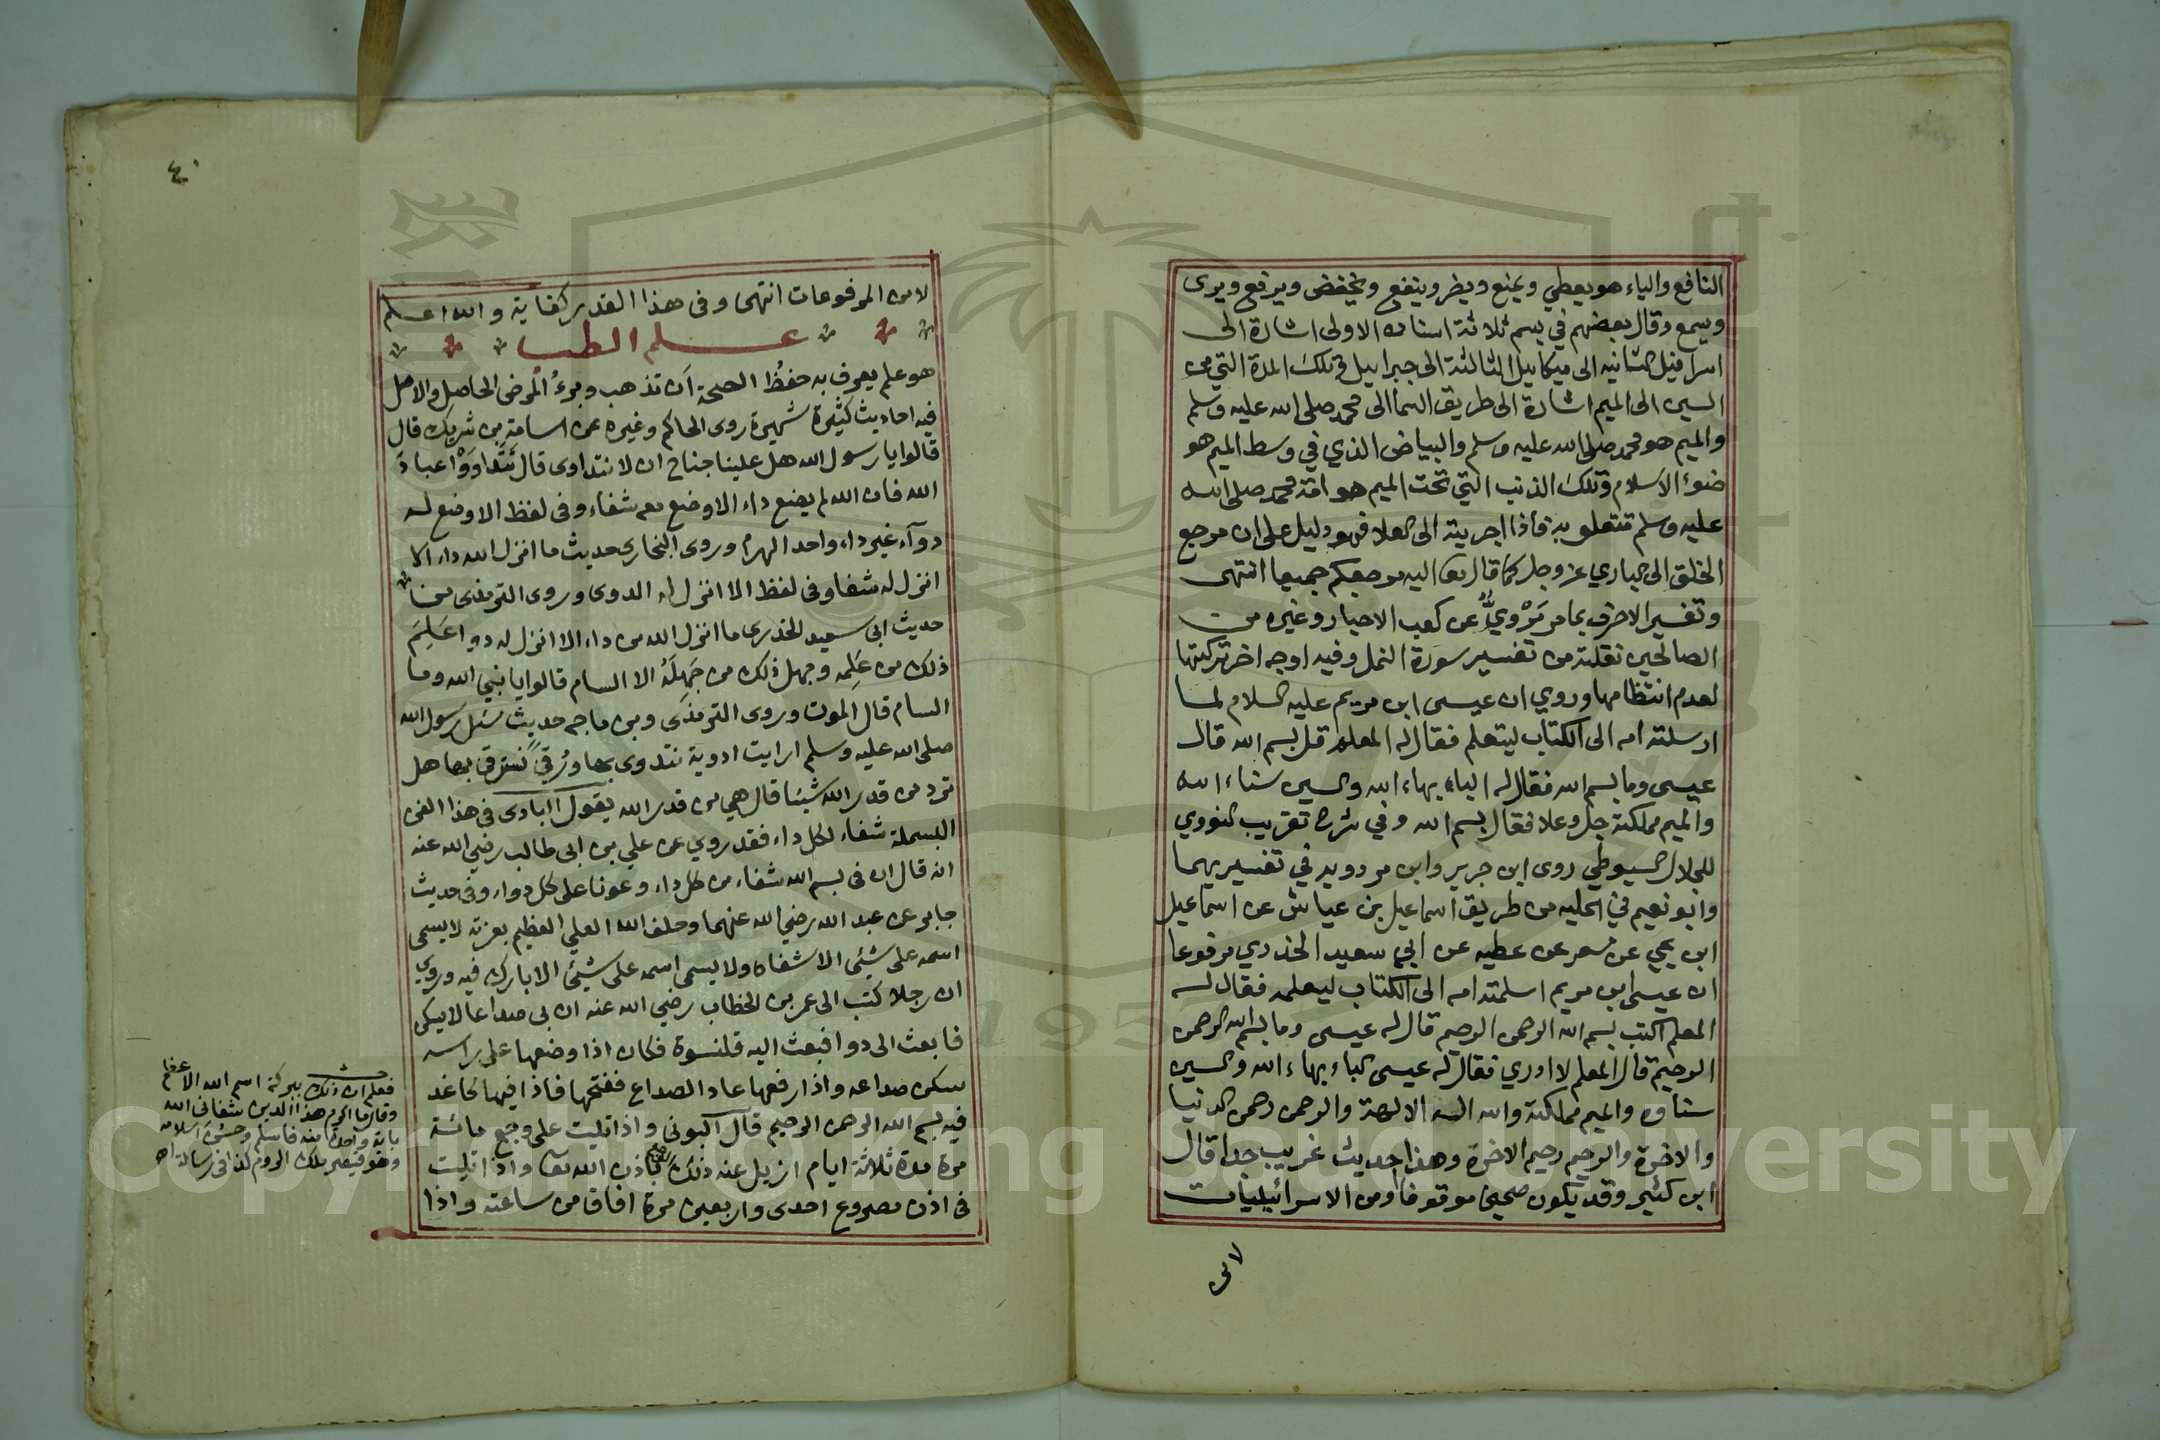 النافع والياء هو يعطي ويمنع ويضر وينفع ويخفض ويرفع ويرى
ويسمع وقال بعضهم في بسم ثلاثة اسنان الاولى اشارة الى
اسرافيل الثانيه الى ميكاييل الثالثة الى جبراييل وتلك المدة التي من
السين الى الميم اشارة الى طريق السما الى محمد صلى الله عليه وسلم
والميم هو محمد صلى الله عليه وسلم والبياض الذي في وسط الميم هو
ضوء الاسلام وتلك الذنب التي تحت الميم هو امة محمد صلى الله
عليه وسلم تتعلق به فاذا اجريته الى العلا فهو دليل على ان مرجع
الخلق الى الباري عز وجل كما قال تعا اليه مرجعكم جميعا انتهى
وتفسير الاحرف بما مر مَرْويٌّ عن كعب الاحبار وغيره من
الصالحين نقلته من تفسير سورة النمل وفيه اوجه اخر تركتها
لعدم انتظامها وروي ان عيسى ابن مريم عليه السلام لما
ارسلته امه الى الكتاب ليتعلم فقال له المعلم قل بسم الله قال
عيسى وما بسم الله فقال له الباء بهاء الله والسين سناء الله
والميم مملكته جل وعلا فقال بسم الله وفي شرح تقريب النووي
للجلال السيوطي روى ابن جرير وابن مردويه في تفسيريهما
وابو نعيم في الحليه من طريق اسماعيل بن عياش عن اسماعيل
ابن يحي عن مسعر عن عطيه عن ابي سعيد الخدري مرفوعا
ان عيسى ابن مريم اسلمته امه الى الكتاب ليعلمه فقال له
المعلم اكتب بسم الله الرحمن الرحيم قال له عيسى وما بسم الله الرحمن
الرحيم قال المعلم لا ادري فقال له عيسى الباء بهاء الله والسين
سناوه والميم مملكته والله اله الالهة والرحمن رحمن الدنيا
والاخرة والرحيم رحيم الاخرة وهذا حديث غريب جدا قال
ابن كثير وقد يكون صحيحا موقوفا او من الاسرائيليات
لا من
٤٠
لا من المرفوعات انتهى وفى هذا القدر كفاية والله اعلم
علم الطب
هو علم يعرف به حفظُ الصحة اَن تذهب وبرءُ المرض الحاصل والاصل
فيه احاديث كثيرة شهيرة روى الحاكم وغيره عن اسامة بن شريك قال
قالوا يا رسول الله هل علينا جناح ان لا نتداوى قال تَدَاوَوْا عبادَ
الله فان الله لم يضع داء الا وضع معه شفاء وفى لفظ الا وضع له
دوآء غير داء واحد الهرم وروى البخارى حديث ما انزل الله داء الا
انزل له شفا وفى لفظ الا انزل له الدوى وروى الترمذى من
حديث ابى سعيد الخدرى ما انزل الله من داء الا انزل له دوا عَلِمَ
ذلك من عَلِمه وجهل ذلك من جَهِلَهُ الا السام قالوا يا نبي الله وما
السام قال الموت وروى الترمذى وبن ماجه حديث سئل رسول الله
صلى الله عليه وسلم ارايت ادوية نتدوى بها ورُقىً نسترقى بها هل
ترد من قدر الله شيئا قال هي من قدر الله يقول البادى فى هذا الفن
البسملة شفاء لكل داء فقد روي عن علي بن ابى طالب رضي الله عنه
انه قال ان فى بسم الله شفاء من كل داء وعونا على كل دواء وفى حديث
جابر عن عبد الله رضي الله عنهما وحلف الله العلي العظيم بعزته لا يسمى
اسمه على شيئى الا شفاه ولا يسمى اسمه على شيئ الا بارك فيه وروي
ان رجلا كتب الى عمر بن الخطاب رضي الله عنه ان بى صداعا لا يسكن
فابعث الى دوا فبعث اليه قلنسوة فكان اذا وضعها على راسه
سكن صداعه واذا رفعها عاد الصداع ففتحها فاذا فيها كاغد
فيه بسم الله الرحمن الرحيم قال البونى واذا تليت على وجع مائة
مرة مدة ثلاثة ايام ازيل عنه ذلك باذن الله تعا واذا تليت
فى اذن مصروع احدى واربعين مرة افاق من ساعته واذا
فعلم ان ذلك ببركة اسم الله الاعظم
وقال ما اكرم هذا الدين شفانى الله
باية واحدة منه فاسلم وحسن اسلامه
وهو قيصر ملك الروم كذا فى رسالة اه
Copyright © King Saud University
1957